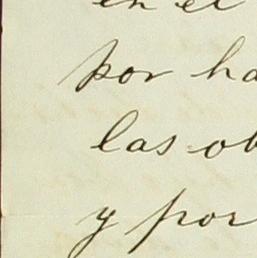 en el
por ha
las ob
y por